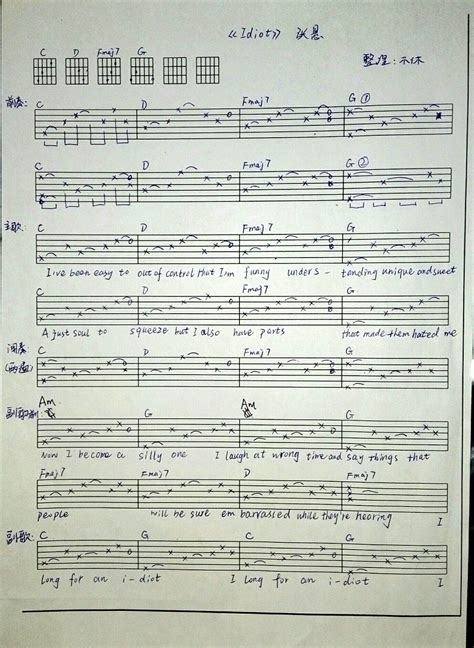 《Idiot》 张悬
C D Fmaj7 G
整理:示休
前奏: C D Fmaj7 G ①
C D Fmaj7 G ②
主歌: C D Fmaj7 G
I've been easy to out of control that I'm funny unders - tanding unique and sweet
C D Fmaj7 G
A just soul to squeeze but I also have parts that made them hated me
间奏: C D Fmaj7 G
(两遍)
Am G Am G
Now I become a silly one I laugh at wrong time and say things that
Fmaj7 Fmaj7 D Fmaj7
people will be sure embarrassed while they're hearing I
副歌: C G C G
long for an i-diot I long for an i-diot I